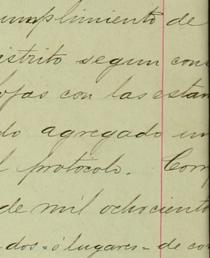 umplimiento de
istrito segun con
ojas con las estam
do agregado un
l protocolo. Com
de mil ochociento
-dos-ó lugares-de co